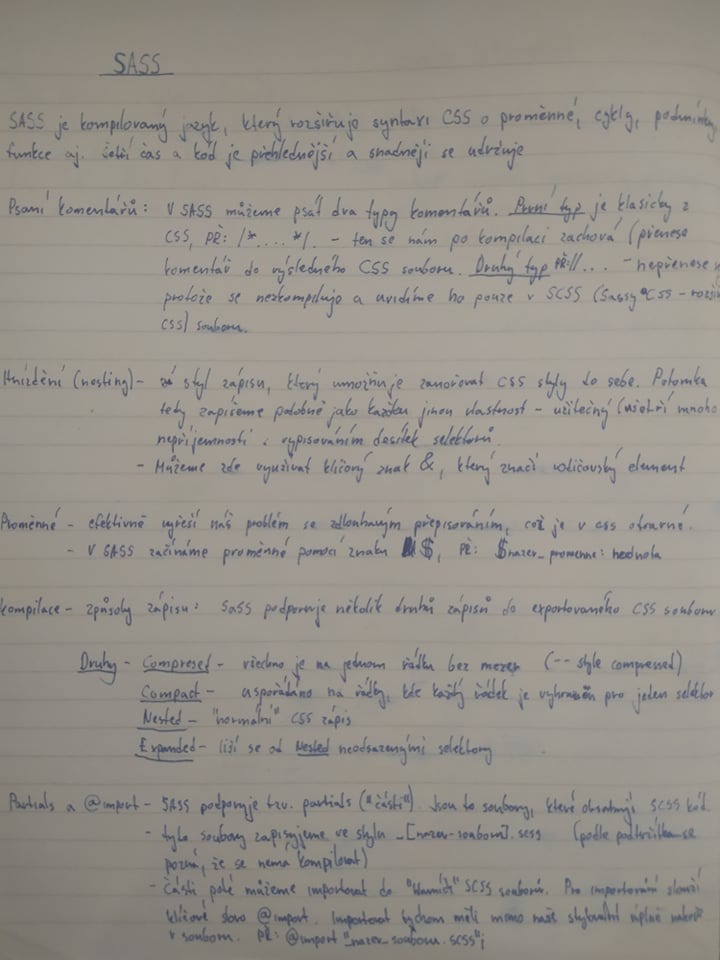 SASS
SASS je kompilovaný jazyk, který rozšiřuje syntaxi CSS o proměnné, cykly, podmínky
funkce aj. šetří čas a kód je přehlednější a snadněji se udržuje
Psaní komentářů: V SASS můžeme psát dva typy komentářů. První typ je klasický z
CSS, PŘ: /*....*/. - ten se nám po kompilaci zachová (přenese
komentář do výsledného CSS souboru. Druhý typ PŘ: //... - nepřenese
protože se nezkompiluje a uvidíme ho pouze v SCSS (Sassy CSS -
CSS) souboru.
Hnízdění (nesting) - styl zápisu, který umožňuje zanořovat CSS styly do sebe. Potomka
tedy zapíšeme podobně jako každou jinou vlastnost - užitečný (ušetří mnoho
nepříjemností s vypisováním desítek selektorů.
- Můžeme zde využívat klíčový znak &, který značí rodičovský element
Proměnné - efektivně vyřeší náš problém se zdlouhavým přepisováním, což je v css otravné.
- V SASS začínáme proměnné pomocí znaku $, PŘ: $nazev_promenne: hodnota
Kompilace - způsoby zápisu: SASS podporuje několik druhů zápisů do exportovaného CSS souboru
Druhy - Compresed - všechno je na jednom řádku bez mezer (--style compressed)
Compact - uspořádáno na řádky, kde každý řádek je vyhrazen pro jeden selektor
Nested - "normální" CSS zápis
Expanded - liší se od Nested neodsazenými selektory
Partials a @import - SASS podporuje tzv. partials ("části"). Jsou to soubory, které obsahují SCSS kód.
- tyto soubory zapisujeme ve stylu _[nazev-souboru].scss (podle podtržítka se
pozná, že se nemá kompilovat)
- Části poté můžeme importovat do "hlavních" SCSS souborů. Pro importování slouží
klíčové slovo @import. Importovat bychom měli mimo naše stylování úplně nahoře
v souboru. PŘ: @import "nazev_souboru.scss";